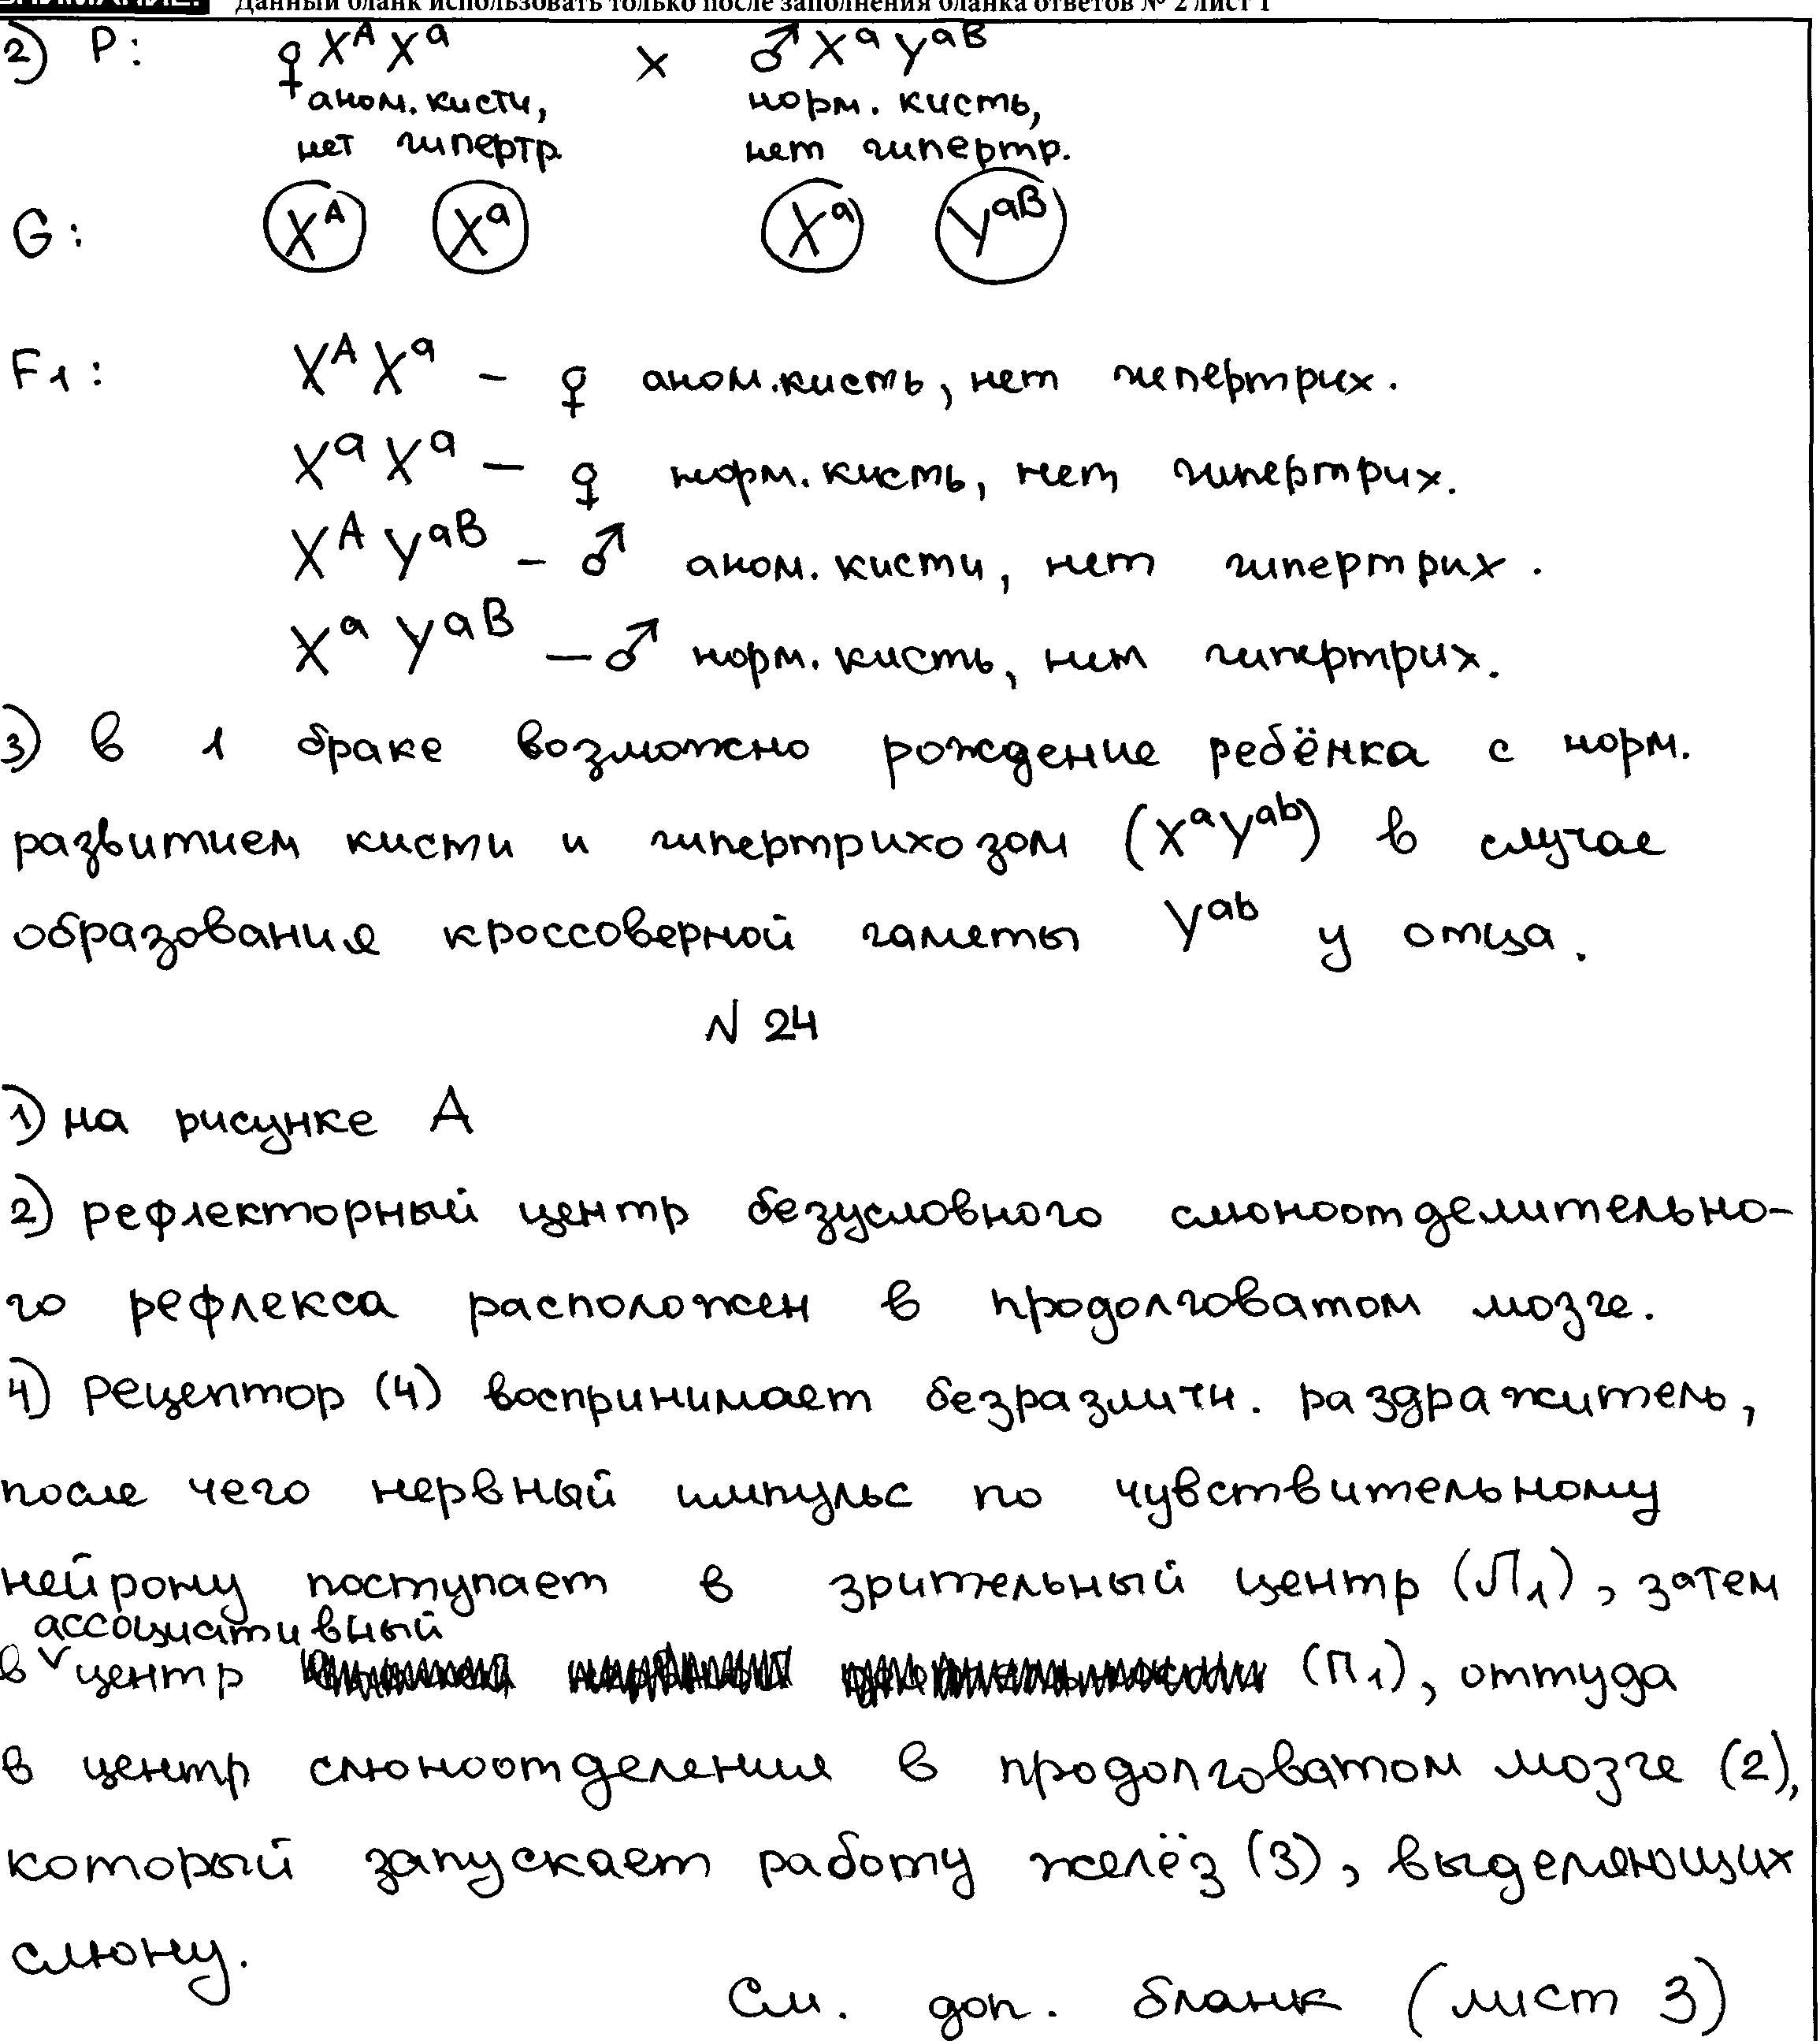 ВНИМАНИЕ! Данный бланк использовать только после заполнения бланка ответов № 2 лист 1
2) P: ♀ Xᴬ Xᵃ × ♂ Xᵃ Yᵃᴮ
аном. кисти, норм. кисть,
нет гипертр. нет гипертр.
G: Xᴬ Xᵃ Xᵃ Yᵃᴮ
F1: Xᴬ Xᵃ – ♀ аном. кисть, нет гипертрих.
Xᵃ Xᵃ – ♀ норм. кисть, нет гипертрих.
Xᴬ Yᵃᴮ – ♂ аном. кисти, нет гипертрих.
Xᵃ Yᵃᴮ – ♂ норм. кисть, нет гипертрих.
3) в 1 браке возможно рождение ребёнка с норм.
развитием кисти и гипертрихозом (XᵃYᵃᵇ) в случае
образования кроссоверной гаметы Yᵃᵇ у отца.
N 24
1) на рисунке А
2) рефлекторный центр безусловного слюноотделительно-
го рефлекса расположен в продолговатом мозге.
4) Рецептор (4) воспринимает безразличн. раздражитель,
после чего нервный импульс по чувствительному
нейрону поступает в зрительный центр (Л1), затем
ассоциативный
в ˅ центр (П1), оттуда
в центр слюноотделения в продолговатом мозге (2),
который запускает работу желёз (3), выделяющих
слюну.
См. доп. бланк (лист 3)